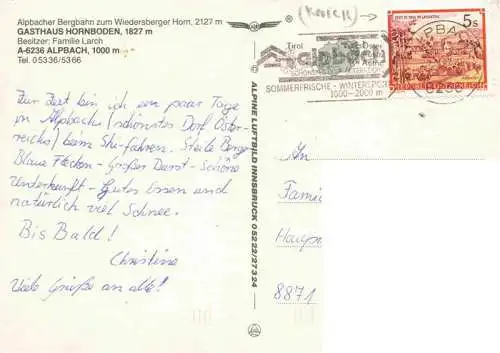 Alpbacher Bergbahn zum Wiedersberger Horn, 2127 m
GASTHAUS HORNBODEN, 1827 m
Besitzer: Familie Larch
A-6236 ALPBACH, 1000 m
Tel. 05336/5366
Zur Zeit bin ich ein paar Tage
in Alpbach (schönstes Dorf Öster-
reichs) beim Ski-fahren. Steile Berge
Blaue Flecken - Großer Durst - Schöne
Unterkunft - Gutes Essen und
natürlich viel Schnee.
Bis Bald!
Christine
Viele Grüße an alle!
ALPINE LUFTBILD INNSBRUCK 05222/27324
Tirol
alpbach
SOMMERFRISCHE - WINTERSPORT
1000-2000 m
5s
An
Famili
8871